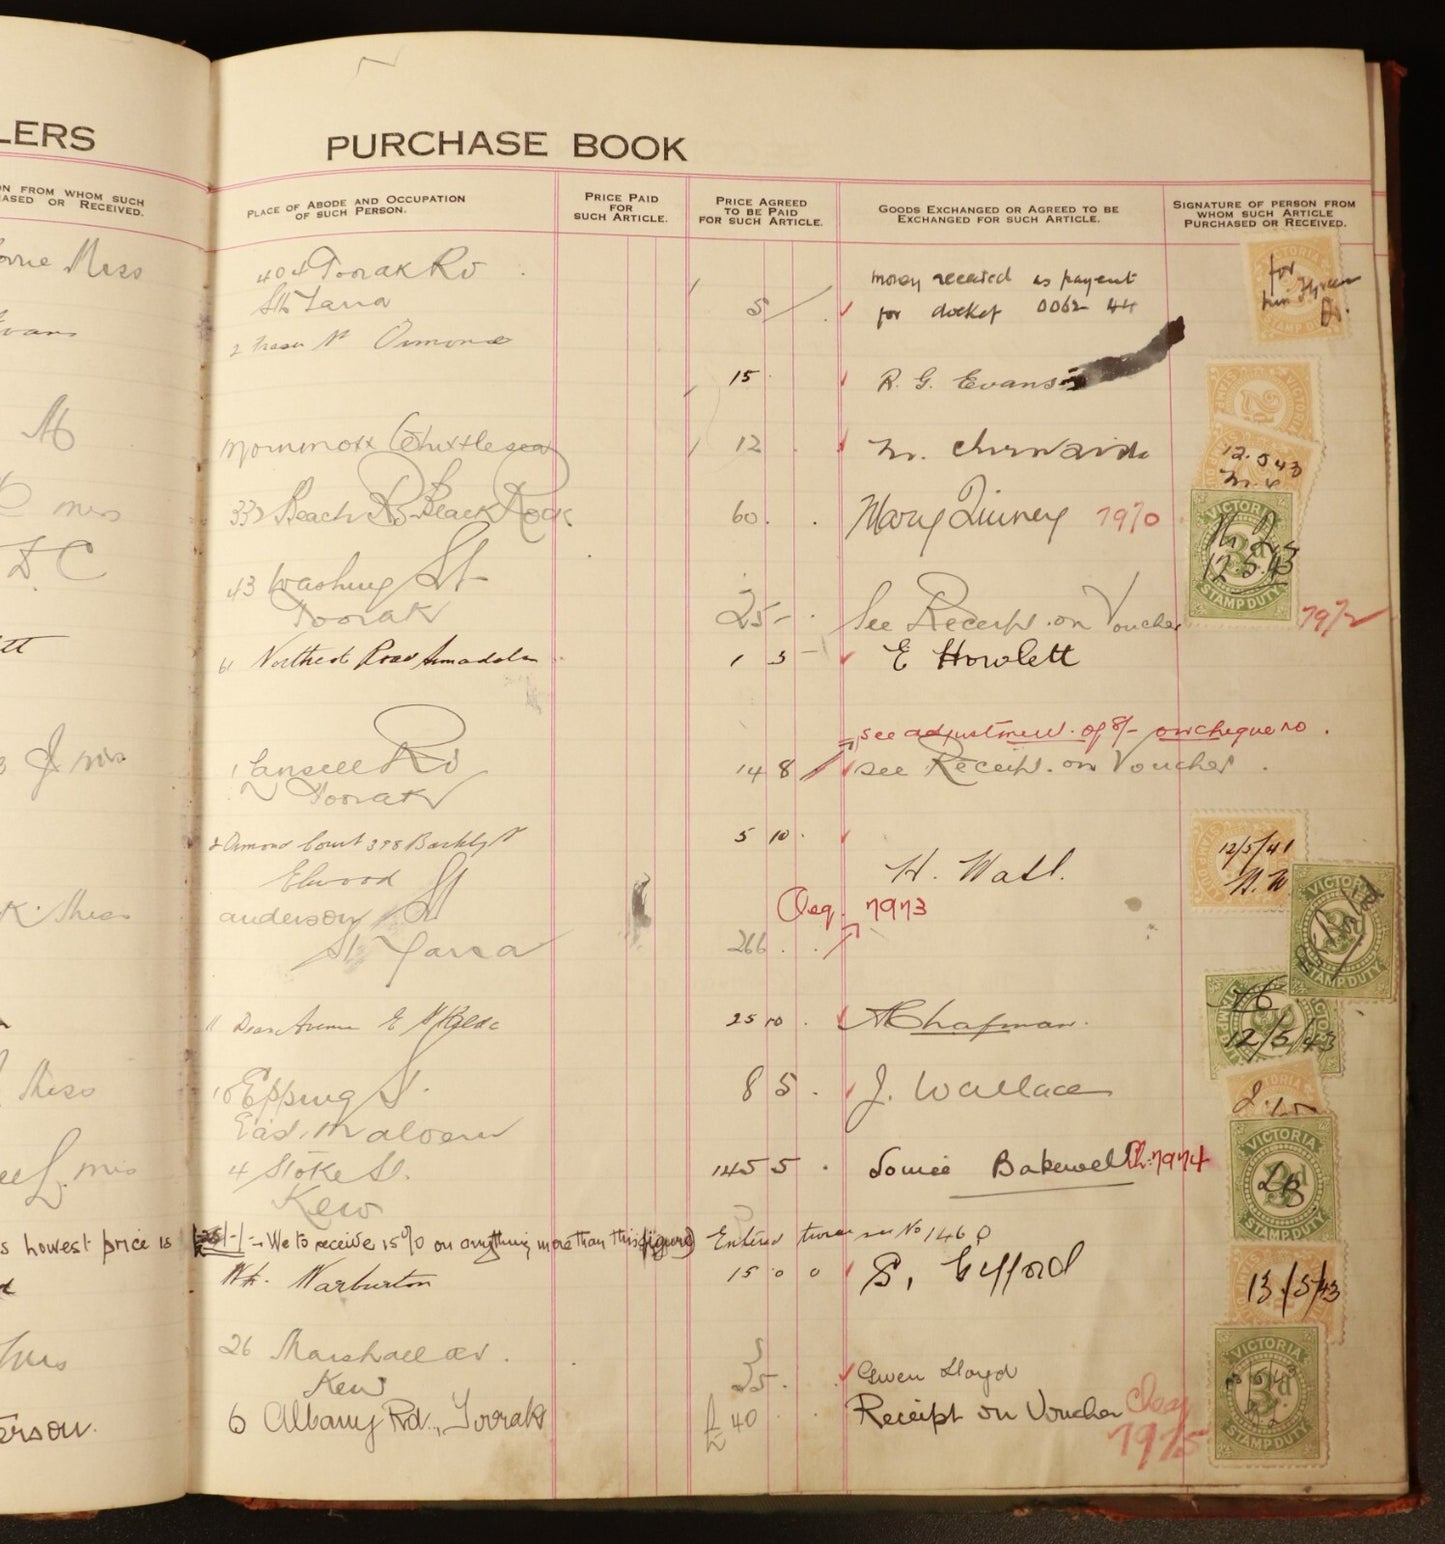 LERS
PURCHASE BOOK
ON FROM WHOM SUCH
ASED OR RECEIVED.
PLACE OF ABODE AND OCCUPATION
OF SUCH PERSON.
PRICE PAID
FOR
SUCH ARTICLE.
PRICE AGREED
TO BE PAID
FOR SUCH ARTICLE.
GOODS EXCHANGED OR AGREED TO BE
EXCHANGED FOR SUCH ARTICLE.
SIGNATURE OF PERSON FROM
WHOM SUCH ARTICLE
PURCHASED OR RECEIVED.
Miss
404 Toorak Rd
Sth Yarra
5
money received as payment
for docket 0062 44
for
vans
2 St Ormond
15
R. G. Evans
12
M.
12.5.43
mrs
Beach Rd Black Rock
60
Mary 7970
VICTORIA
3d
12.5.43
STAMP DUTY
D C
43 St
Toorak
25
See Receipt on Voucher
7972
tt
61 Road Armadale
1 5
E Howlett
see adjustment of 8/- on cheque no.
J mrs
1 Lansell Rd
Toorak
14 8
see Receipt on Voucher
2 Ormond Court 378 Barkly St
Elwood
5 10
H. Wall.
12/5/41
H. W.
K. Miss
anderson St
St Yarra
266
Ceq. 7973
VICTORIA
STAMP DUTY
11 Avenue E St Kilda
25 10
A Chapman.
12/5/43
Miss
16 Epping St.
East Malvern
8 5
J. Wallace
L. mrs
4 Stoke St.
Kew
145 5
Louie Bakewell Ch. 7974
VICTORIA
3d
LB
STAMP DUTY
s lowest price is
We to receive 15% on anything more than this figure)
Entered twice see No 146
Warburton
15 0 0
S. Gifford
13/5/43
Mrs
26 Marshall av.
Kew
35
Gwen Lloyd
VICTORIA
3d
STAMP DUTY
erson.
6 Albany Rd., Toorak
£ 40
Receipt on Voucher
7975